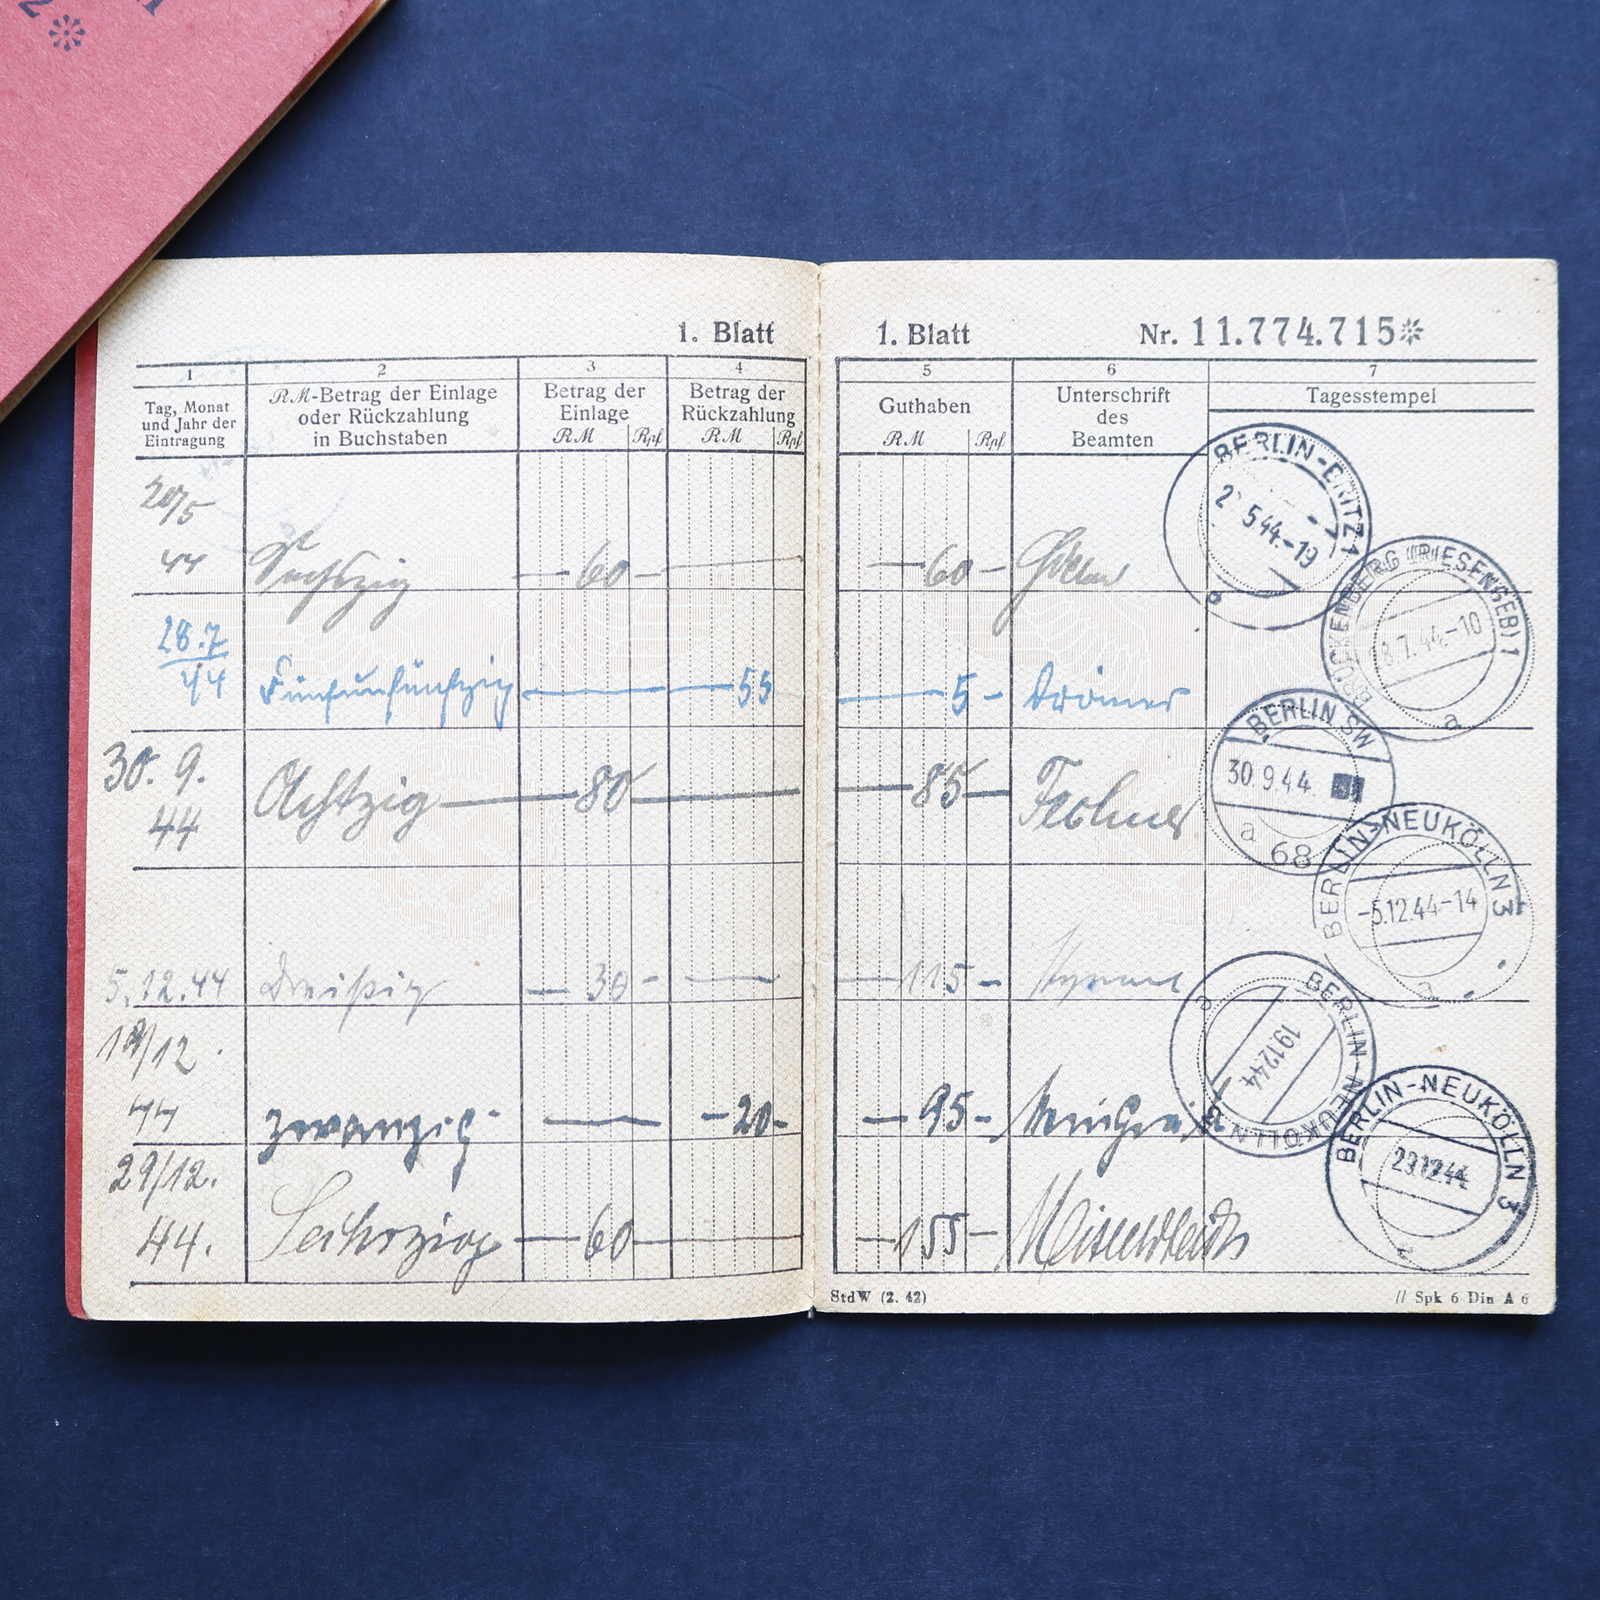 1. Blatt
1 2 3 4
Tag, Monat und Jahr der Eintragung
RM-Betrag der Einlage oder Rückzahlung in Buchstaben
Betrag der Einlage
RM Rpf
Betrag der Rückzahlung
RM Rpf
20/5 44 Sechzig — 60 —
28.7 44 Fünfunfünfzig — 55
30. 9. 44 Achtzig — 80 —
5.12.44 Dreißig — 30 - —
19/12 44 zwanzig - — - 20 -
29/12. 44. Sechszig — 60 —
1. Blatt Nr. 11.774.715
5 6 7
Guthaben
RM Rpf
Unterschrift des Beamten
Tagesstempel
— 60 —
— 5 -
— 85 —
— 115 -
— 95 -
— 155 -
BERLIN-BRITZ 1
5 44.-19
BRÜCKENBERG (RIESENGEB) 1
8.7.44.-10
a
BERLIN SW
30.9.44
a 68
BERLIN-NEUKÖLLN 3
-5.12.44-14
a
BERLIN-NEUKÖLLN 3
19.12.44
a
BERLIN-NEUKÖLLN 3
29.12.44
StdW (2. 42)
// Spk 6 Din A 6